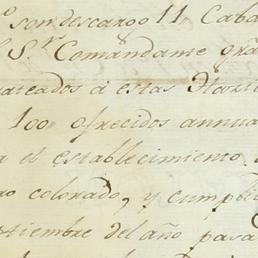 son descargo 11 Caba
S.r Comandante gra
ateados á estas
100 ofrecidos annua
el establecimiento
colorado, y cumpli
tiembre del año pasa